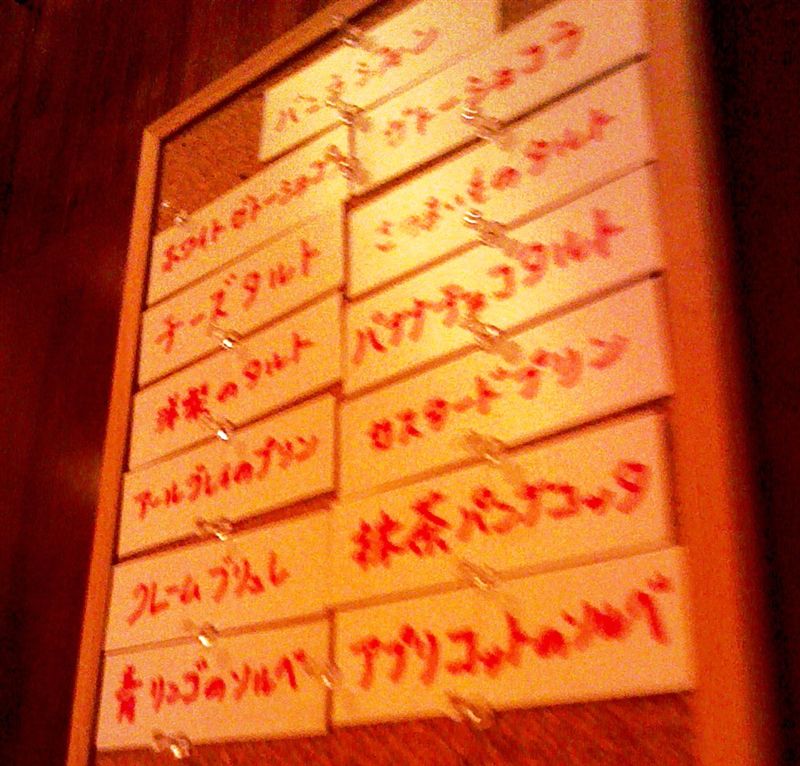 ガトーショコラ
ホワイトガトーショコラ
さつまいものタルト
チーズタルト
バナナチョコタルト
抹茶のタルト
カスタードプリン
アールグレイのプリン
抹茶パンナコッタ
クレームブリュレ
アプリコットのソルベ
青リンゴのソルベ